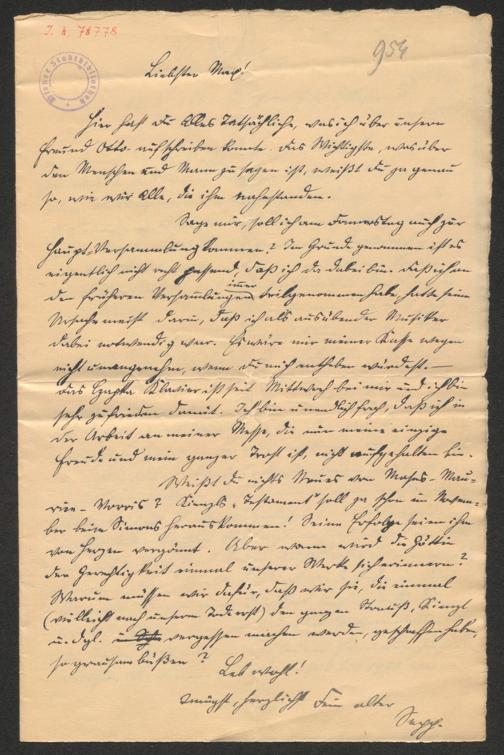 J. N. 78778
954
Wiener Stadtbibliothek
Liebster Max!
Hier hast Du Alles Tatsächliche, was ich über unsern
Freund Otto aufschreiben konnte. Das Wichtigste, was über
den Menschen und Mann zu sagen ist, weißt Du ja genau
so, wie wir Alle, die ihm nahestanden.
Sage mir, soll ich am Donnerstag auch zur
Haupt-Versammlung kommen? Im Grund genommen ist es
eigentlich nicht recht passend, daß ich da dabei bin. Daß ich an
den früheren Versammlungen immer teilgenommen habe, hatte seine
Ursache meist darin, daß ich als ausübender Musiker
dabei notwendig war. Es wäre mir meiner Ruhe wegen
nicht unangenehm, wenn Du mich entheben würdest. —
Das Klavier ist seit Mittwoch bei mir und ich bin
sehr zufrieden damit. Ich bin unendlich froh, daß ich in
der Arbeit an meiner Messe, die nun meine einzige
Freude und mein ganzer Trost ist, nicht aufgehalten bin.
Weißt Du nichts Neues von
? Kienzls „Testament" soll ja schon im Novem-
ber beim Simons herauskommen! Seine Erfolge seien ihm
von Herzen vergönnt. Aber wann wird die Göttin
der Gerechtigkeit einmal unserer Werke sich erinnern?
Warum müssen wir dafür, daß wir sie, die einmal
(vielleicht nach unserm Tode erst) den ganzen Strauß, Kienzl
u. dgl. vergessen machen werden, geschaffen haben,
so grausam büßen?
Leb wohl!
Innigst, herzlichst Dein alter
Sepp.